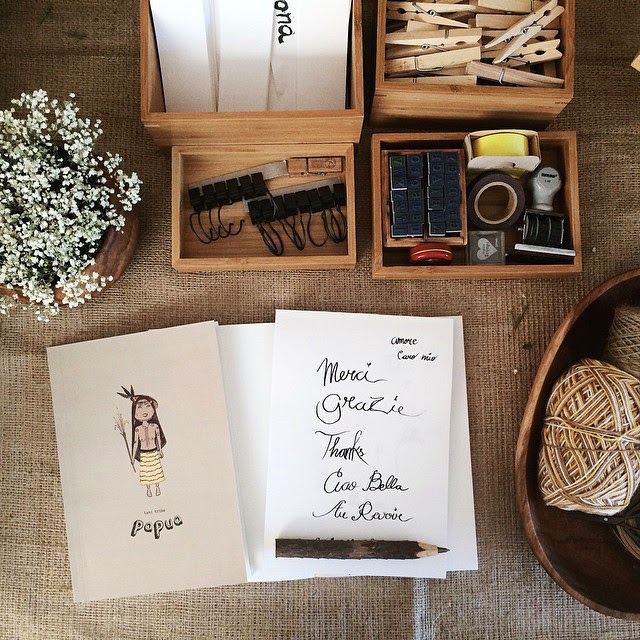 ona
amore
Caro mio
Merci
Grazie
Thanks
Ciao Bella
Au Revoir
Papua